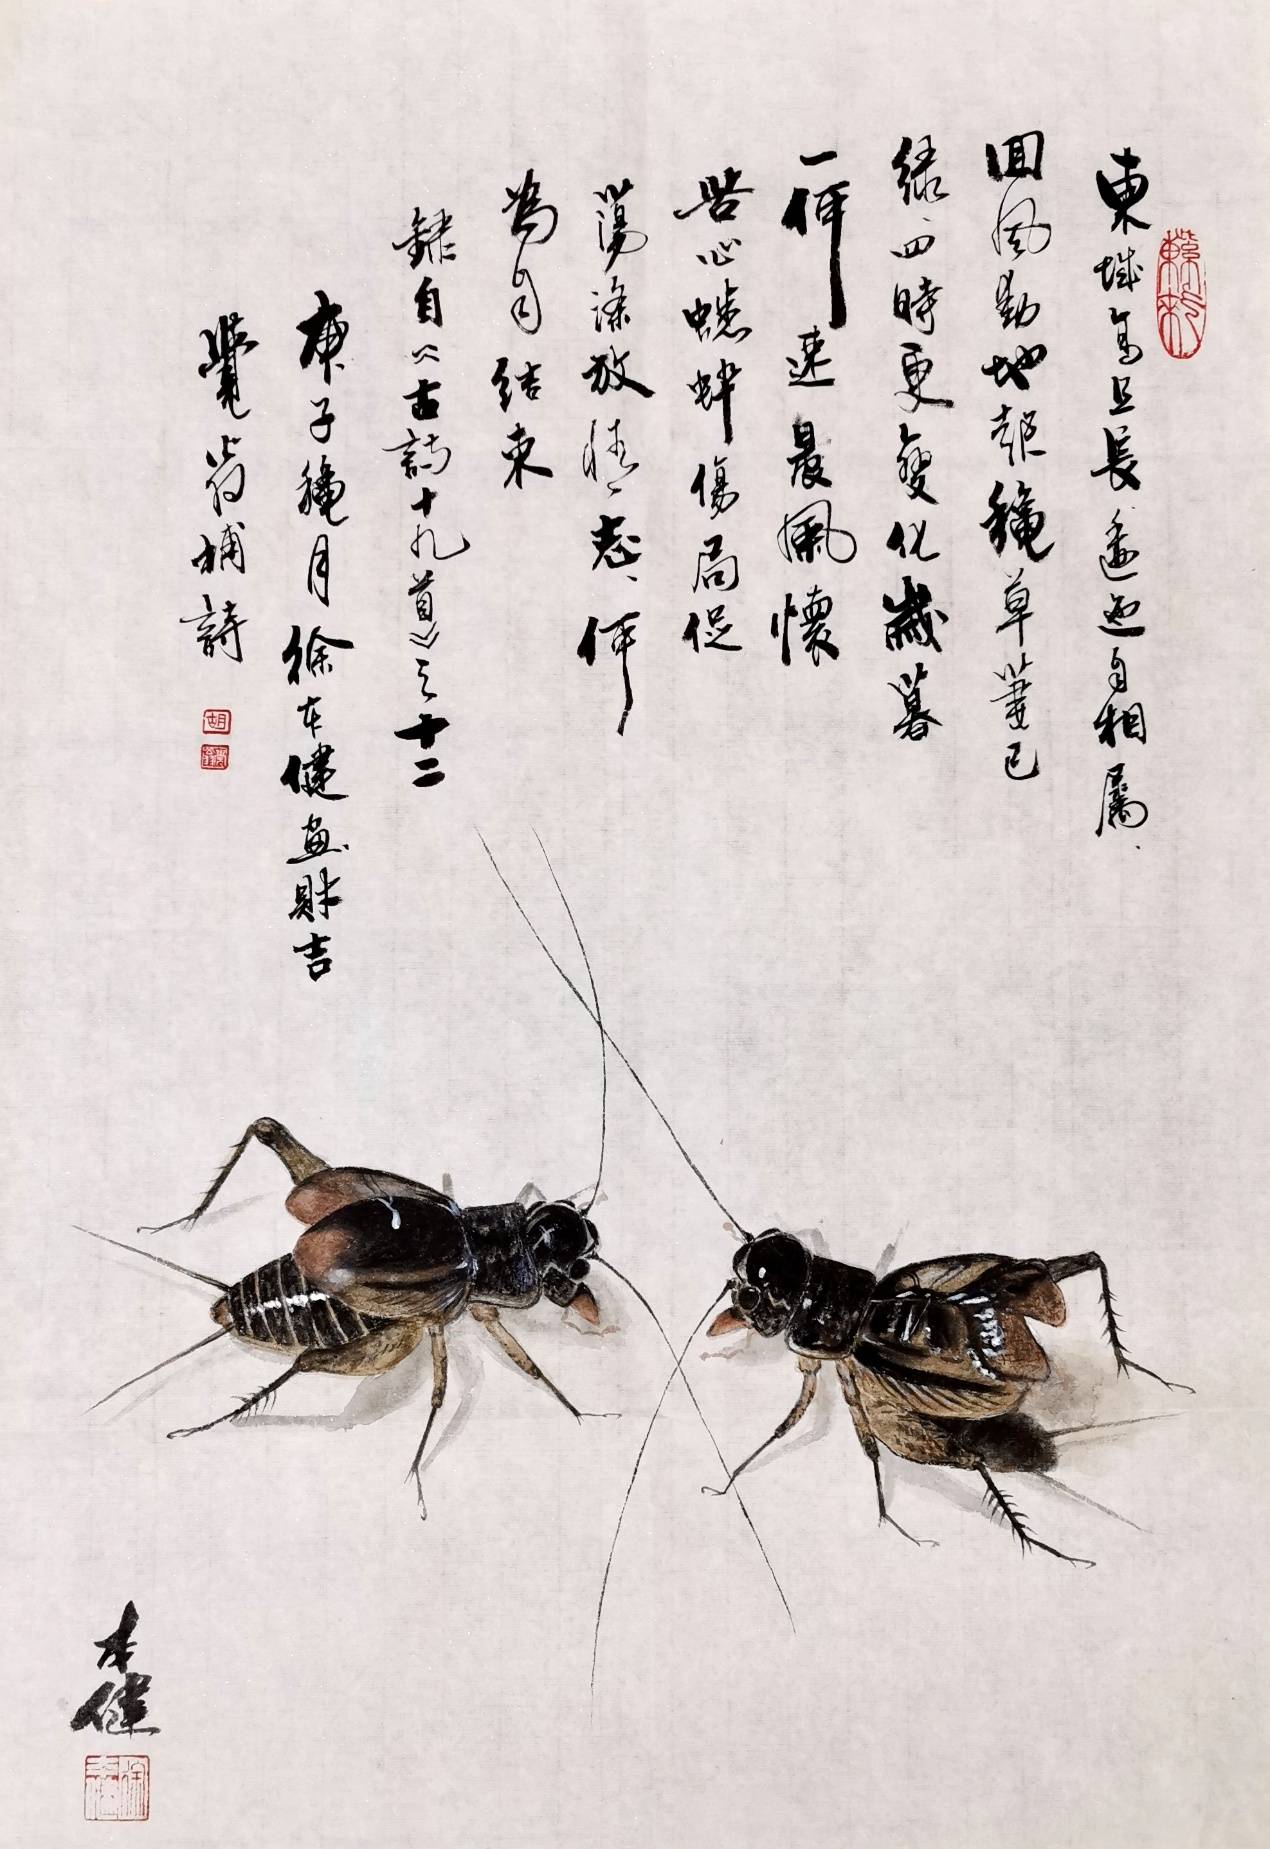 東城高且長逶迤自相屬、
回風動地起龝草萋已
緑、四時更變化歲暮
一何速晨風懷
苦心蟋蟀傷局促
蕩滌放情、志、何
為自結束
録自《古詩十九首》之十二
庚子龝月徐本健畫財吉
覺翁補詩
胡
本健